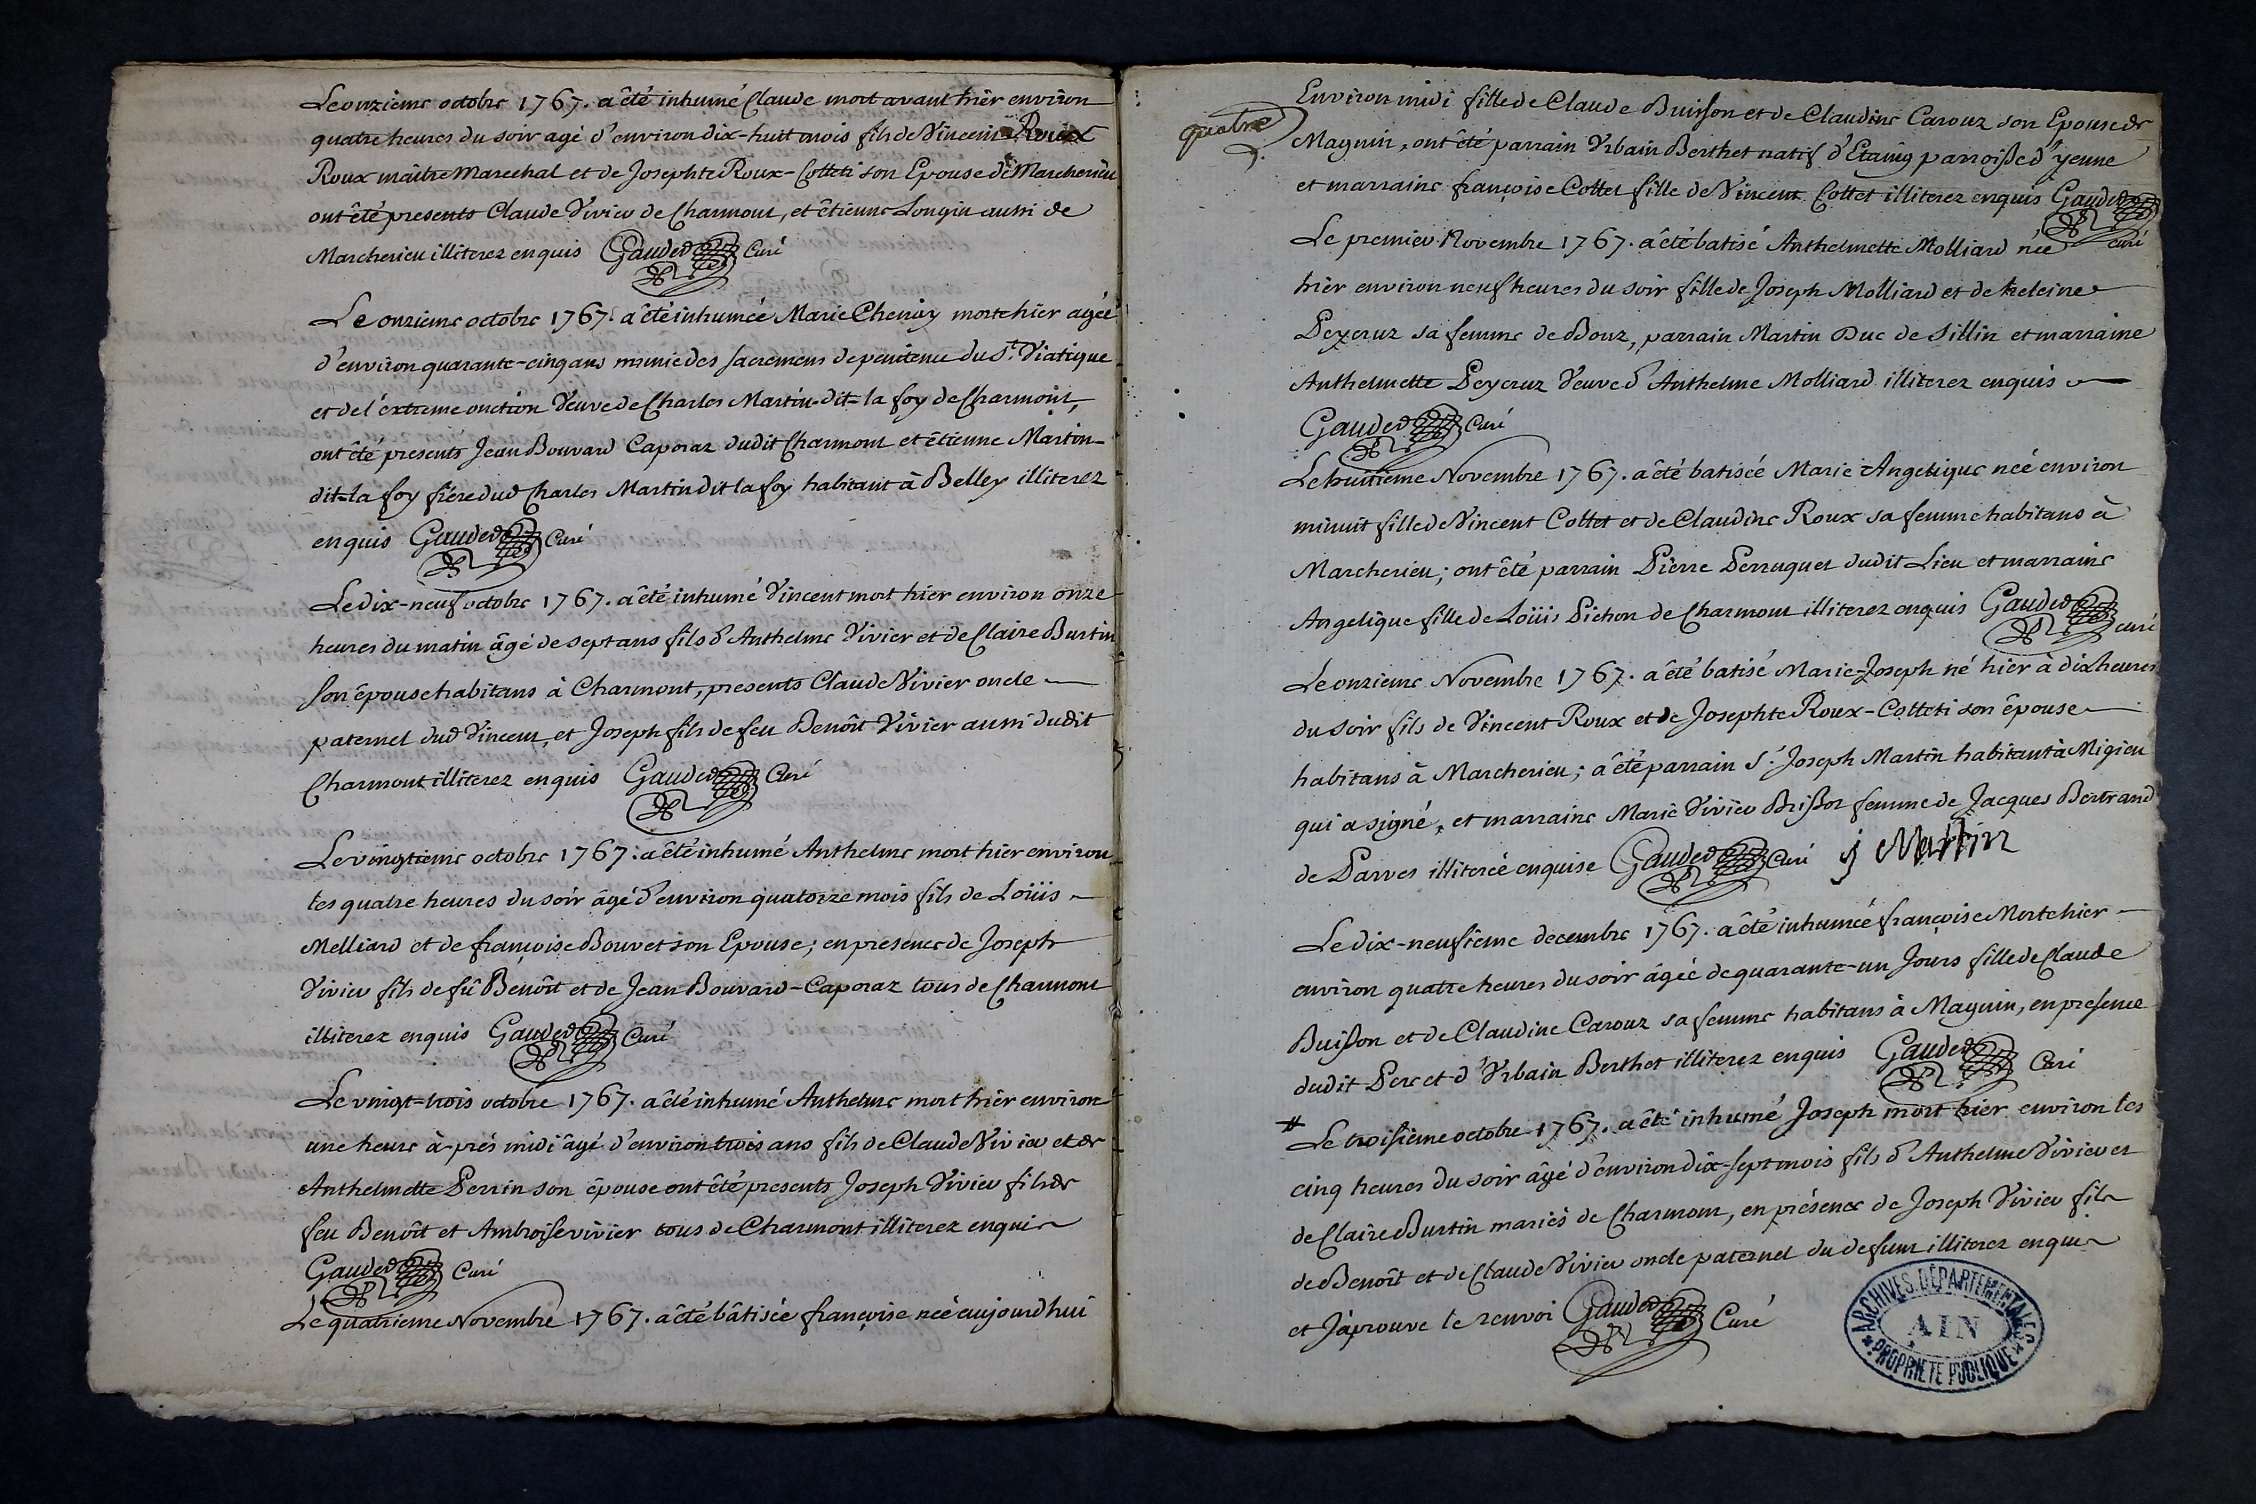 Le onzieme octobre 1767. a êté inhumé Claude mort avant hier environ
quatre heures du soir agé d'environ dix-huit mois fils de Vincent Roux
Roux maître Marechal et de Josephte Roux-Colleti son Epouse de Marcherieu
ont êté presents Claude Vivier de Charmont, et êtienne Longin aussi de
Marcherieu illiterez enquis Gauded Curé
Le onzieme octobre 1767. a êté inhumée Marie Chenay morte hier agée
d'environ quarante-cinq ans munie des sacremens de penitence du St. Viatique
et de l'extreme onction Veuve de Charles Martin-dit-la foy de Charmont,
ont êté presents Jean Bouvard Caporaz dudit Charmont et êtienne Martin-
dit-la foy frére dud Charles Martin dit la foy habitant à Belley illiterez
enquis Gauded Curé
Le dix-neuf octobre 1767. a êté inhumé Vincent mort hier environ onze
heures du matin âgé de sept ans fils d'Anthelme Vivier et de Claire Burtin
son êpouse habitans à Charmont, presents Claude Vivier oncle
paternel dud Vincent, et Joseph fils de feu Benoît Vivier aussi dudit
Charmont illiterez enquis Gauded Curé
Le vingtieme octobre 1767. a êté inhumé Anthelme mort hier environ
les quatre heures du soir âgé d'environ quatorze mois fils de Loüis
Molliard et de françoise Bouvet son Epouse; en presence de Joseph
Vivier fils de fû Benôit et de Jean Bouvard-Caporaz tous de Charmont
illiterez enquis Gauded Curé
Le vingt-trois octobre 1767. a êté inhumé Anthelme mort hier environ
une heure à-prés midi âgé d'environ trois ans fils de Claude Vivier et de
Anthelmette Perrin son êpouse ont êté presents Joseph Vivier fils de
feu Benoît et Ambroise vivier tous de Charmont illiterez enquis
Gauded Curé
Le quatrieme Novembre 1767. a êté bâtisée françoise neé aujourd hui
quatre
Environ midi fille de Claude Buisson et de Claudine Carouz son Epouse de
Magnin, ont êté parrain Urbain Berthet natif d'Etaing parroisse d'yenne
et marraine françoise Collet fille de Vincent Collet illiterez enquis Gauded
curé
Le premier Novembre 1767. a êté batisé Anthelmette Molliard née
hier environ neuf heures du soir fille de Joseph Molliard et de heleine
Peyeruz sa femme de Bouz, parrain Martin Duc de Sillin et marraine
Anthelmette Peyeruz Veuve d'Anthelme Molliard illiterez enquis
Gauded Curé
Le huitieme Novembre 1767. a êté batisée Marie Angelique neé environ
minuit fille de Vincent Collet et de Claudine Roux sa femme habitans à
Marcherieu; ont êté parrain Piérre Perruquet dudit Lieu et marraine
Angelique fille de Loüis Pichon de Charmont illiterez enquis Gauded
curé
Le onzieme Novembre 1767. a êté batisé Marie-Joseph né hier à dix heures
du soir fils de Vincent Roux et de Josephte Roux-Colleti son êpouse
habitans à Marcherieu; a êté parrain Sr. Joseph Martin habitant à Migieu
qui a signé, et marraine Marie Vivier Brissoz femme de Jacques Bertrand
de Parves illiterée enquise Gauded Curé j Martin
Le dix-neufieme decembre 1767. a êté inhumée françoise Morte hier
environ quatre heures du soir âgée de quarante-un Jours fille de Claude
Buisson et de Claudine Carouz sa femme habitans à Magnin, en presence
dudit Pere et d'Urbain Berthet illiterez enquis Gauded Curé
# Le troisieme octobre 1767. a êté inhumé Joseph mort hier environ les
cinq heures du soir âgé d'environ dix-sept mois fils d'Anthelme Vivier et
de Claire Burtin mariés de Charmont, en présence de Joseph Vivier fils
de Benoît et de Claude Vivier oncle paternel du defunt illiterez enquis
et J'aprouve le renvoi Gauded Curé
ARCHIVES DÉPARTEMENTALES
AIN
PROPRIÉTÉ PUBLIQUE